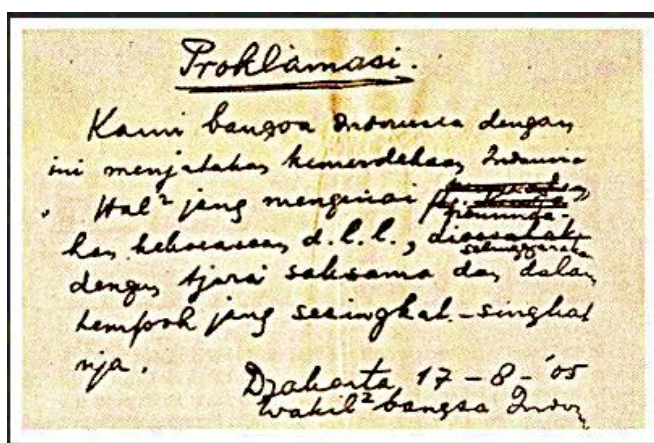 Proklamasi.
Kami bangsa Indonesia dengan
ini menjatakan kemerdekaan Indonesia
. Hal² jang mengenai
pemindahan
kan kekoeasaan d.l.l., dioesahakan
selenggarakan
dengan tjara saksama dan dalam
tempoh jang sesingkat-singkat
nja.
Djakarta, 17 - 8 - '05
Wakil² bangsa Indon